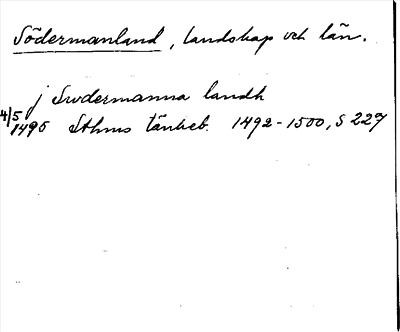 Södermanland, Landskap och län.
j Swdermanna landh
4/5 1495 Sthms tänkeb. 1492-1500, S 227